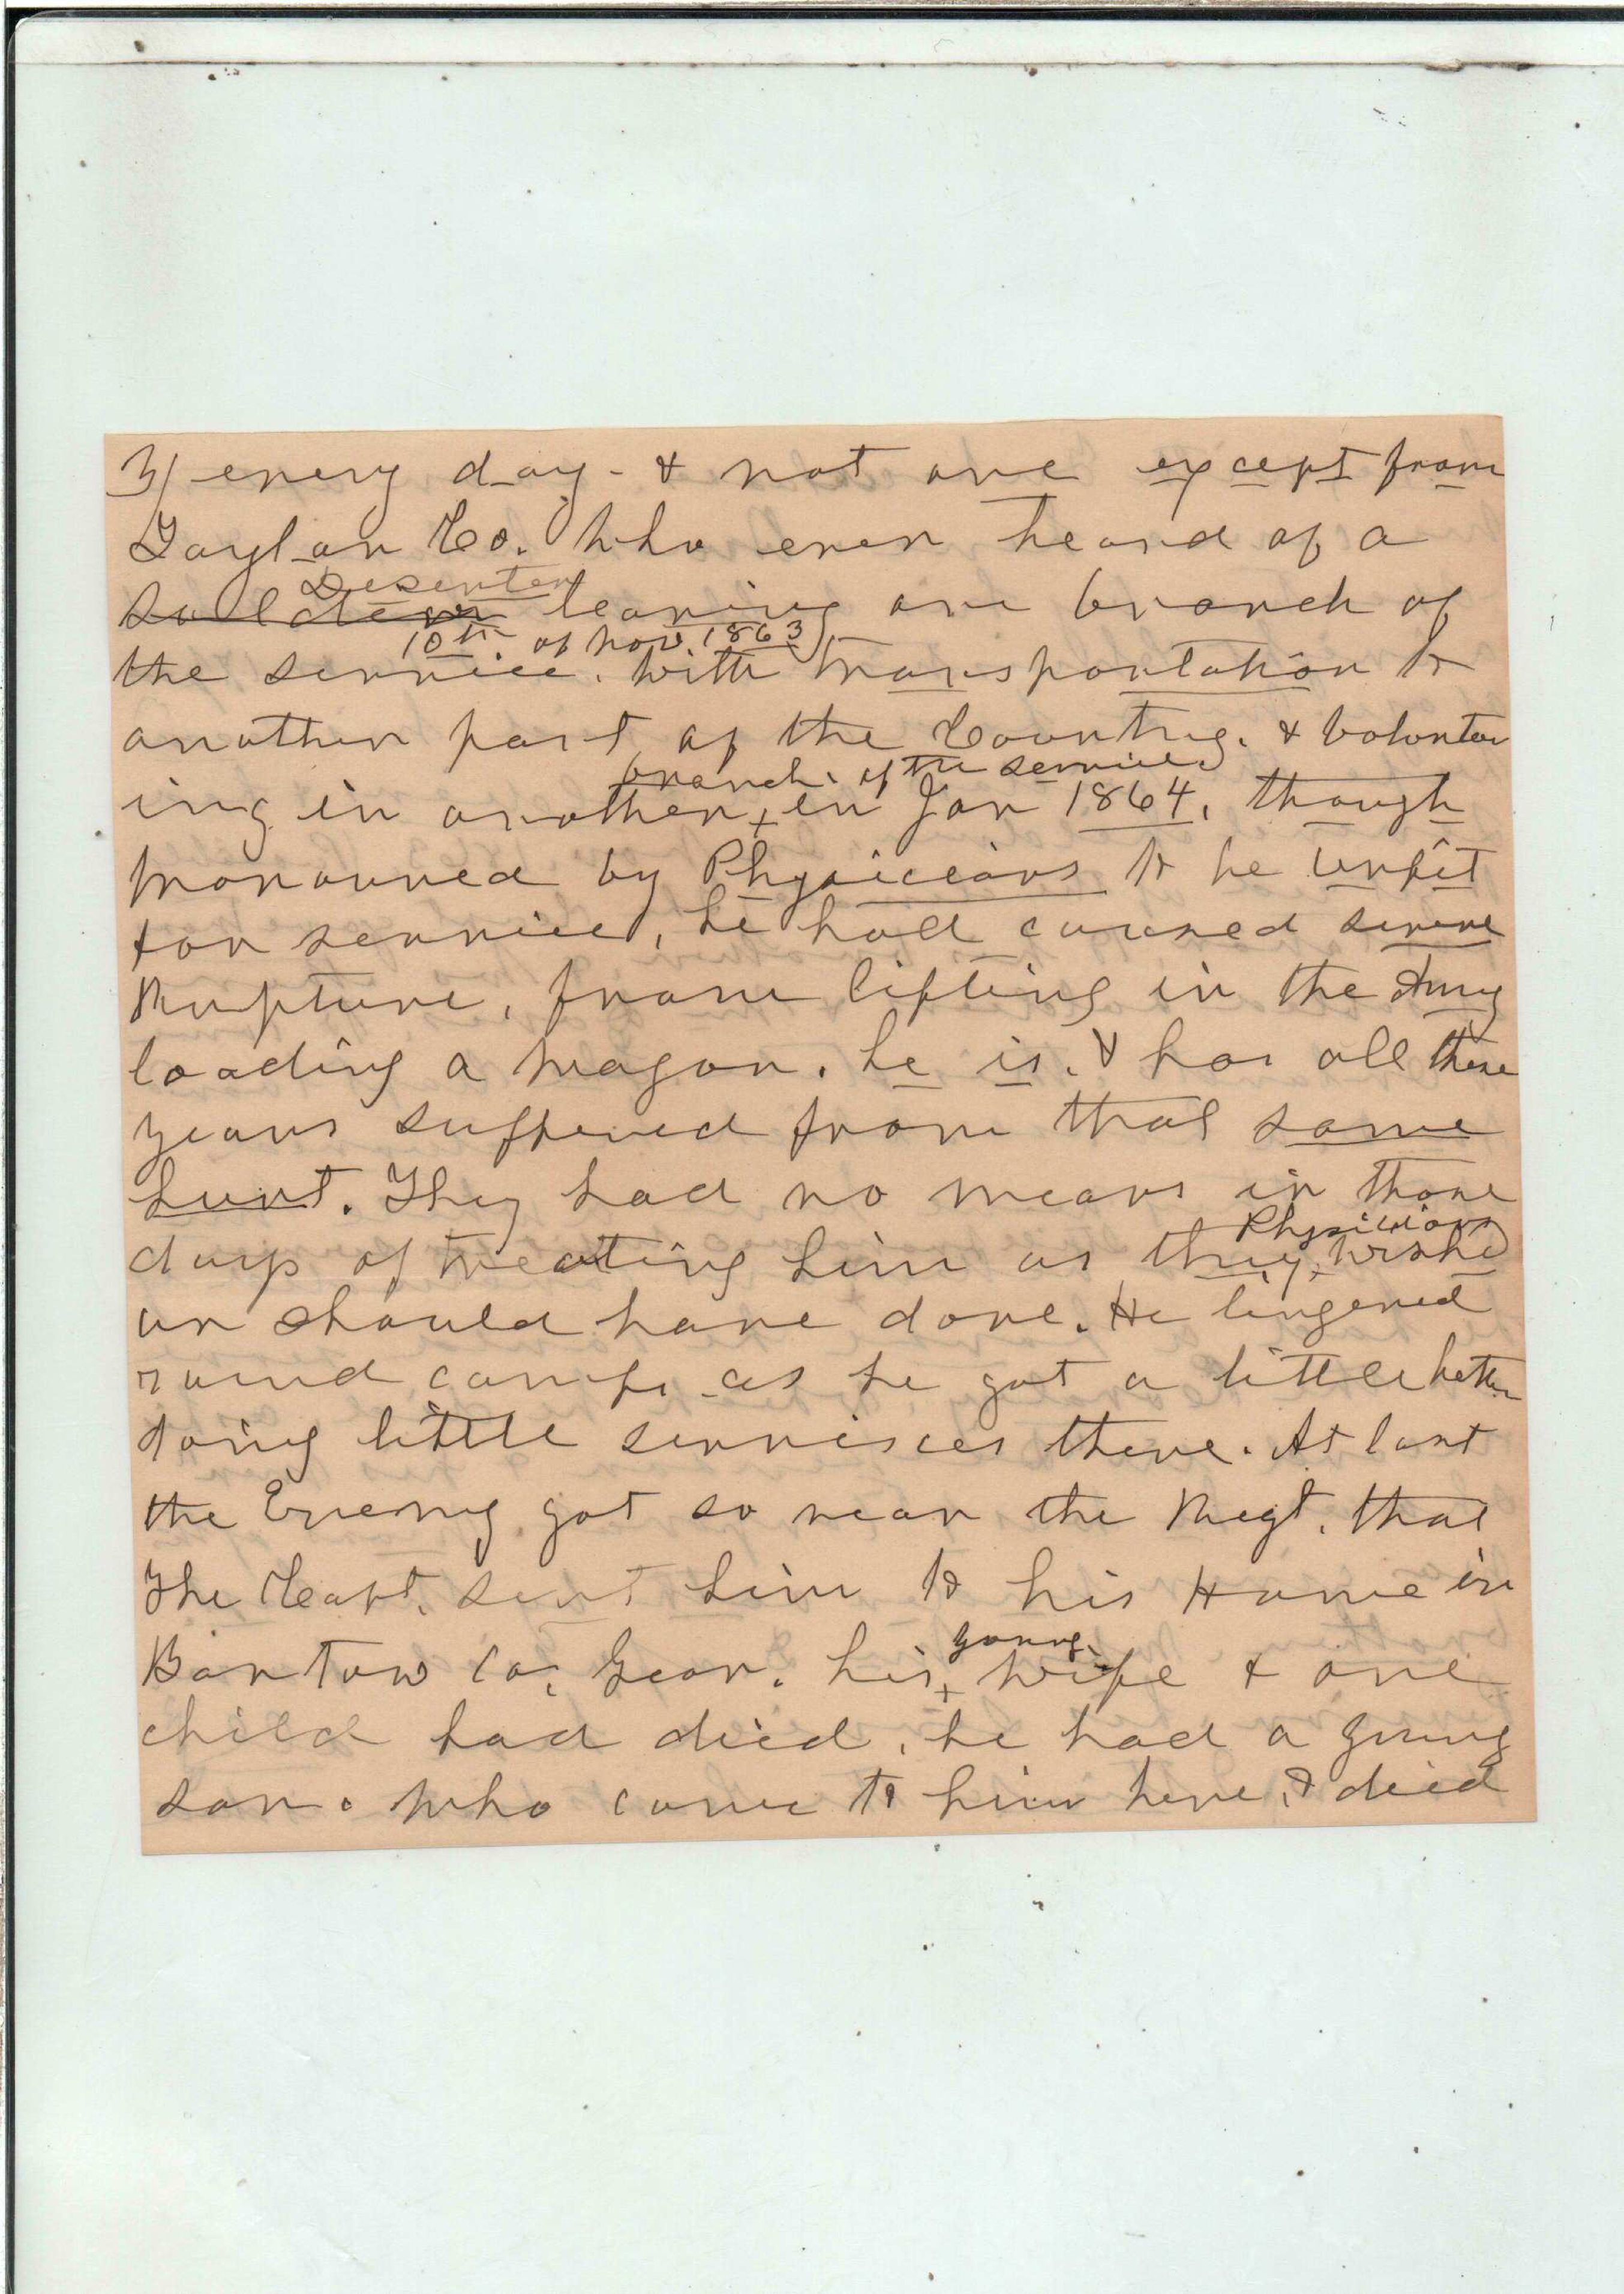 3) every day - & not one except from
Taylor Co. who ever heard of a
Deserter
Soldier leaving one branch of
10th of Nov. 1863
the service. with transportation to
another part of the Country. & Volunteer
branch of the service
ing in another + in Jan 1864, though
pronounced by Physicians to be unfit
for service, he had caused severe
Rupture, from lifting in the Army
loading a wagon. he is. & has all these
years suffered from that same
hurt. They had no means in those
Physicians
days of treating him as they + wished
or should have done. He lingered
round camp as he got a little better
doing little services there. At last
the Enemy got so near the Regt. that
The Capt. sent him to his Home in
Bartow Co. Geor. his
young
+ wife & one
child had died, he had a young
son. who came to him here, & died